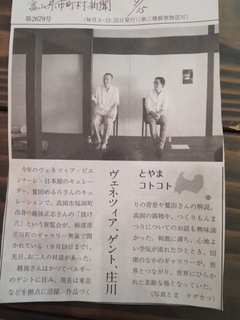 富山県市町村新聞 7/15
第2679号
(毎月5・15・25日発行)(第三種郵便物認可)
とやま
コトコト
ヴェネツィア、ゲント、庄川
今年のヴェネツィア・ビエ
ンナーレ・日本館のキュレー
ター、鷲田めるろさんのキュ
レーションで、高岡市福岡町
出身の越後正志さんの「抜け
穴」という展覧会が、砺波市
庄川町のギャラリー無量で開
かれている(9月18日まで)。
先日、お二人の対談があった。
越後さんはかつてベルギー
のゲントに住み、現在は東京
などを拠点に活躍。作品づく
りの背景や鷲田さんの解説、
高岡の鋳物や、つくりもんま
つりについてのお話も興味深
かった。刺激に満ち、心地よ
い空気が流れたひととき。田
園のなかのギャラリーが、世
界とつながり、世界にひらか
れた素敵な場となっていた。
(写真と文 タダカツ)